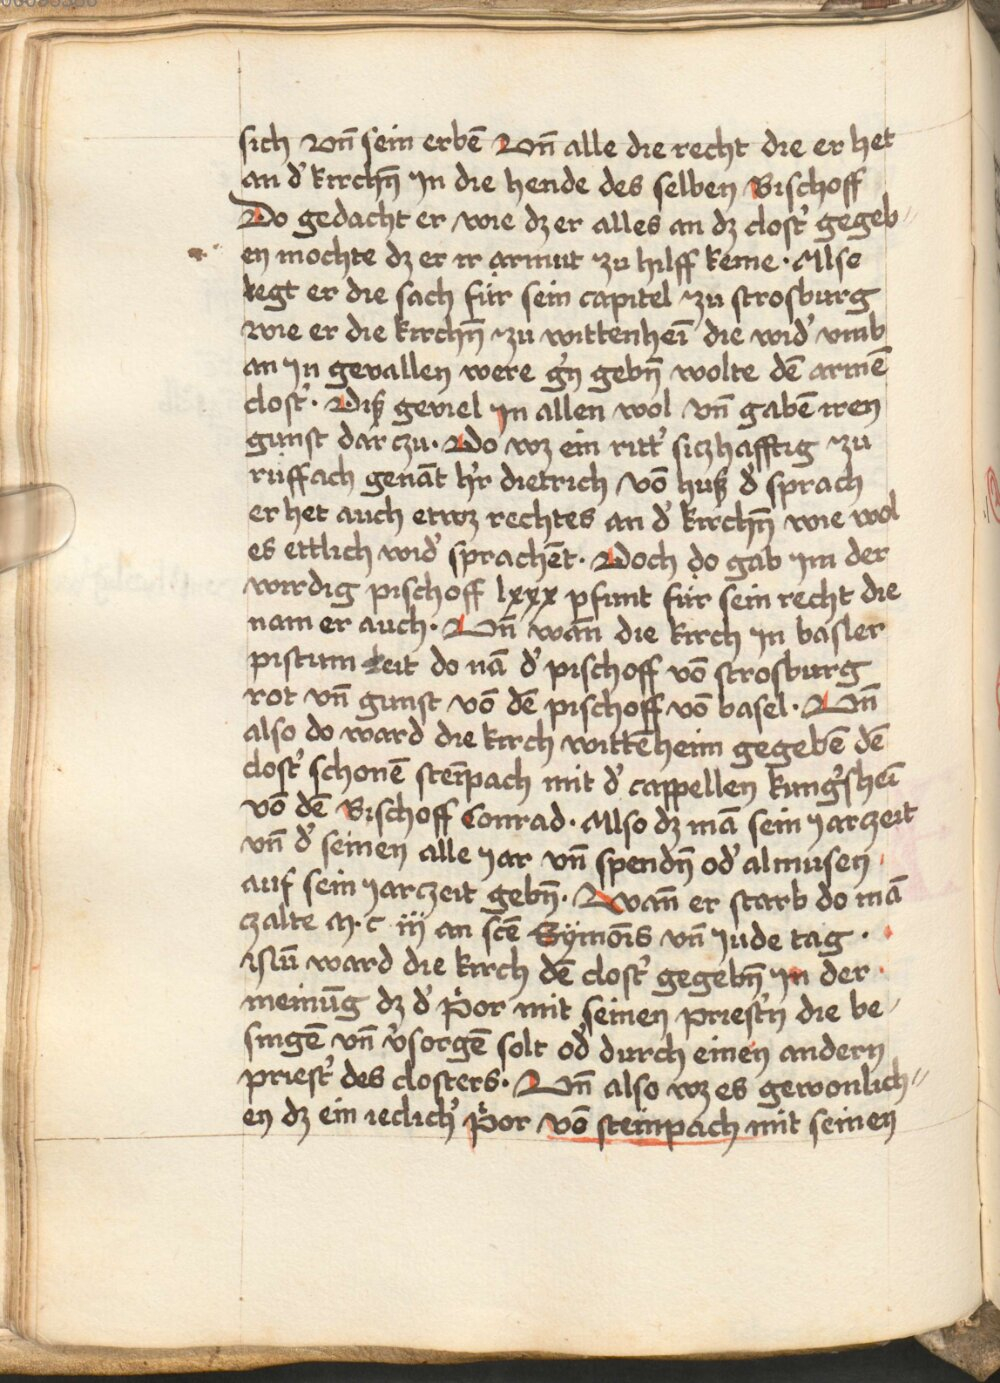 sich vn̄ sein erbē Vn̄ alle die recht die er het
an d' kirchn̄ Jn die hende des selben Bischoff
Do gedacht er wie dz er alles an dz clost' gegeb〃
en mochte dz er ir armut zu hilff keme · Also
legt er die sach für sein capitel zu strosburg
wie er die kirchn̄ zu wittenheī die wid' vmb
an jn gevallen were g'n gebn̄ wolte dē armē
clost' · Diß geviel jn allen wol vn̄ gabē iren
gunst dar czu · Do wz ein ritt' siczhafftig zu
rüffach genāt h'r dietrich vō huß d' sprach
er het auch etwz rechtes an d' kirchn̄ wie wol
es ettlich wid' sprachēt · Doch do gab im der
wirdig pischoff lxxx pfunt für sein recht die
nam er auch · Vn̄ wān die kirch jn basler
pistum leit do nā d' pischoff vō strosburg
rot vn̄ gunst vō dē pischoff vō basel · Vn̄
also do ward die kirch wittēheim gegebē dē
clost' schonē steīpach mit d' cappellen kung'sheī
vō dē Bischoff Conrad · Also dz mā sein jarczeit
vn̄ d' seinen alle jar vn̄ spendn̄ od' almusen
auf sein jarczeit gebn̄ · Wān er starb do mā
czalte M · c iij an scē Symōis vn̄ jude tag ·
ward die kirch dē clost' gegebn̄ jn der
meinūg dz d' p'or mit seinen priest'n die be
singē vn̄ v'sorgē solt od' durch einen andern
priest' des closters · Vn̄ also wz es gewonlich〃
en dz ein ieclich' p'or vō steinpach mit seinen